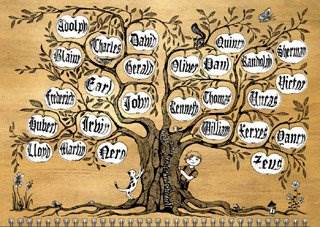 Adolph
Charles
David
Quincy
Sherman
Blaine
Gerald
Oliver
Paul
Randolph
Earl
Victor
Frederick
John
Kenneth
Thomas
Uncas
Hubert
Irwin
William
Xerxes
Yancy
Lloyd
Martin
Nero
Zeus